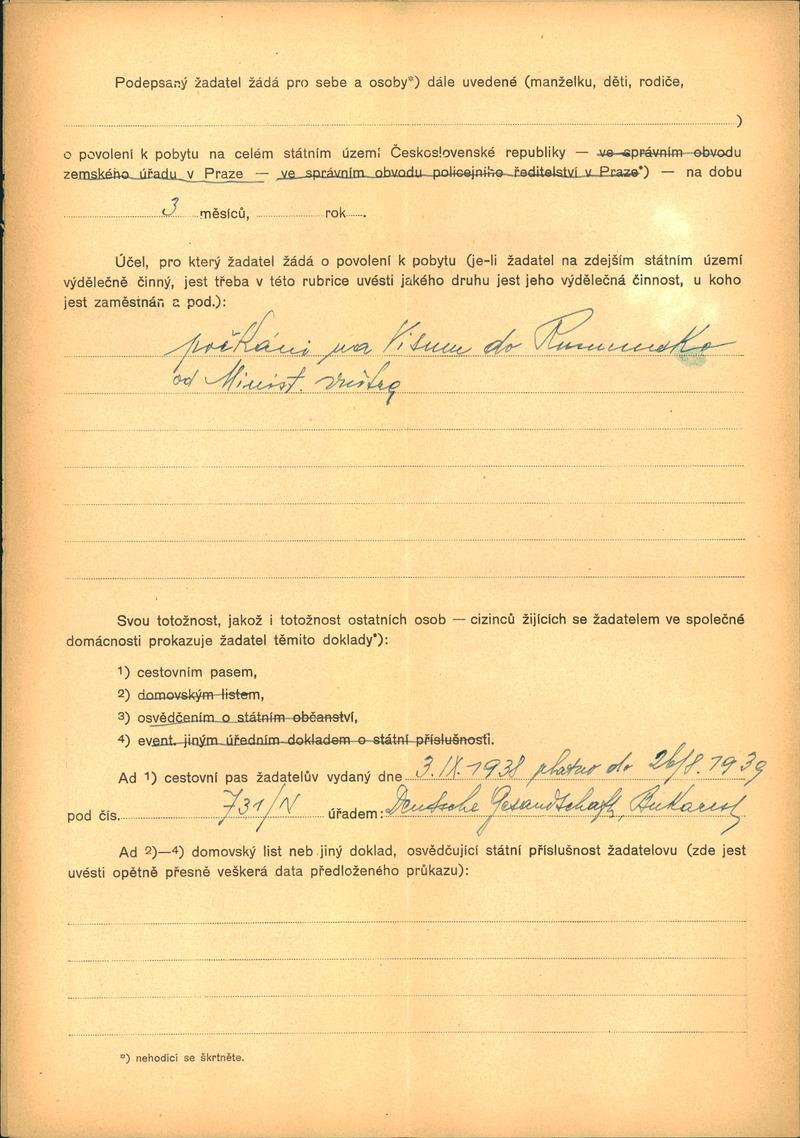 Podepsaný žadatel žádá pro sebe a osoby*) dále uvedené (manželku, děti, rodiče,
)
o povolení k pobytu na celém státním území Československé republiky — ve správním obvodu
zemského úřadu v Praze — ve správním obvodu policejního ředitelství v Praze*) — na dobu
3 měsíců, rok .
Účel, pro který žadatel žádá o povolení k pobytu (je-li žadatel na zdejším státním území
výdělečně činný, jest třeba v této rubrice uvésti jakého druhu jest jeho výdělečná činnost, u koho
jest zaměstnán a pod.):
počkáni na Visum do Rumunsko
od Minist. vnitra
Svou totožnost, jakož i totožnost ostatních osob — cizinců žijících se žadatelem ve společné
domácnosti prokazuje žadatel těmito doklady*):
1) cestovním pasem,
2) domovským listem,
3) osvědčením o státním občanství,
4) event. jiným úředním dokladem o státní příslušnosti.
Ad 1) cestovní pas žadatelův vydaný dne 3.IX.1938 platno do 26/8.1939
pod čís. 731/N úřadem: Deutsche Gesandtschaft, Bukarest
Ad 2)—4) domovský list neb jiný doklad, osvědčující státní příslušnost žadatelovu (zde jest
uvésti opětně přesně veškerá data předloženého průkazu):
*) nehodící se škrtněte.